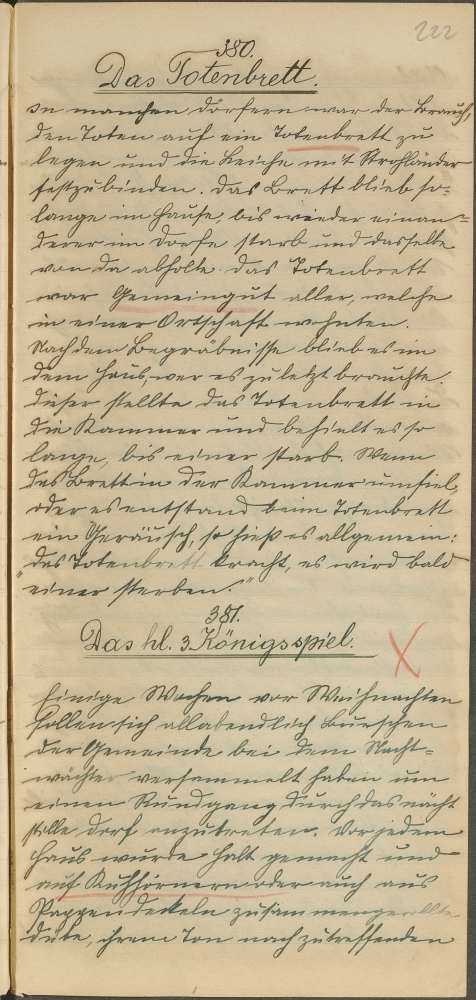 222
380.
Das Totenbrett.
In manchen Dörfern war der Brauch,
den Toten auf ein Totenbrett zu
legen und die Leiche mit Strohbänder
festzubinden. Das Brett blieb so-
lange im Hause, bis wieder einan-
derer im Dorfe starb und dasselbe
von da abholte. Das Totenbrett
war Gemeingut aller, welche
in einer Ortschaft wohnten.
Nach dem Begräbnisse blieb es im
dem Haus, wer es zuletzt brauchte.
Dieser stellte das Totenbrett in
die Kammer und behielt es so
lange, bis einer starb. Wenn
das Brett in der Kammer umfiel,
oder es entstand beim Totenbrett
ein Geräusch, so hieß es allgemein:
"Das Totenbrett kracht, es wird bald
einer sterben."
381.
Das hl. 3 Königsspiel.
Einige Wochen vor Weihnachten
sollen sich allabendlich Burschen
der Gemeinde bei dem Nacht-
wächter versammelt haben um
einen Rundgang durch das nächt
stille Dorf anzutreten. Vor jedem
Haus wurde halt gemacht und
auf Kuhhörnern oder auch aus
Pappendeckeln zusammengerollte
Düte, ihrem Ton nach zutreffenden